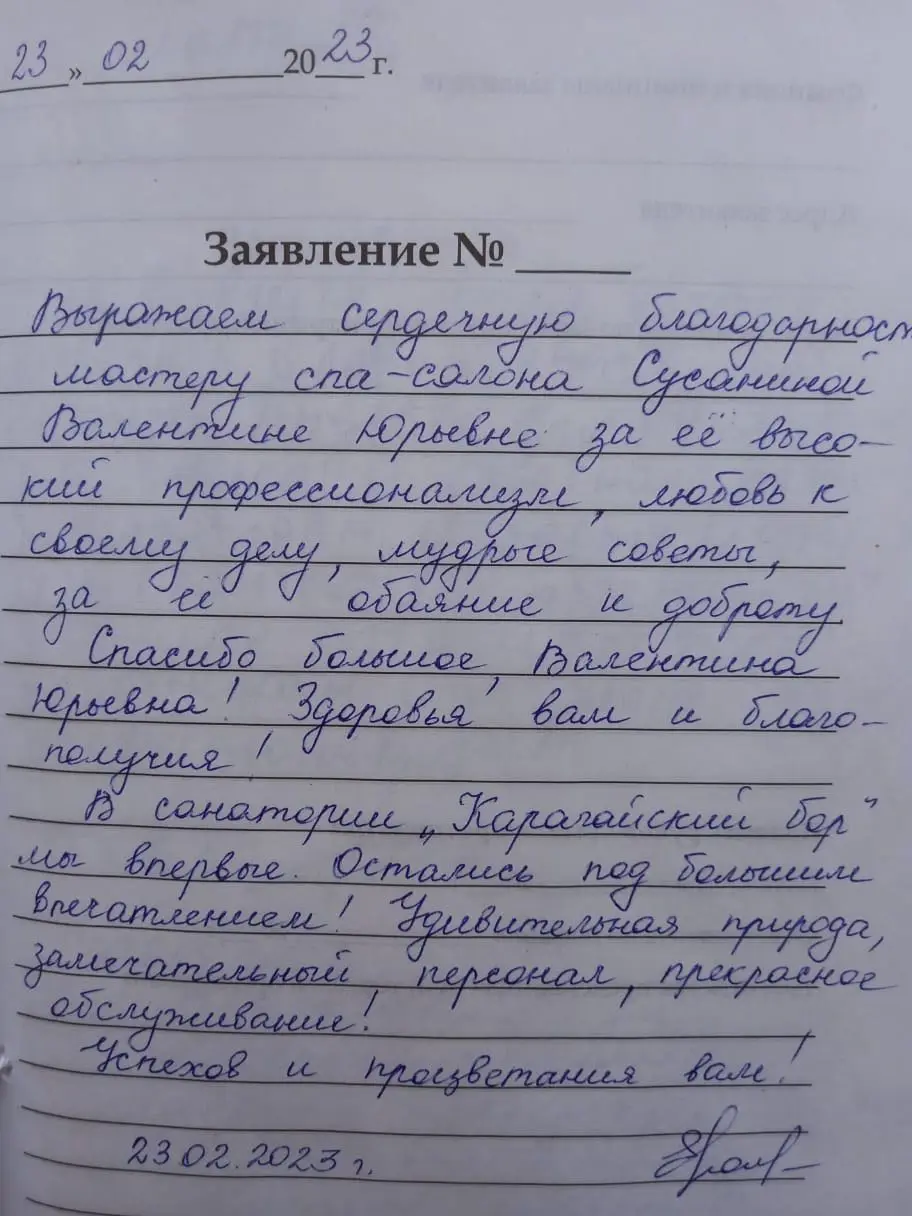 23 » 02 2023 г.
Заявление №
Выражаем сердечную благодарност
мастеру спа-салона Сусаниной
Валентине Юрьевне за её высо-
кий профессионализм, любовь к
своему делу, мудрые советы,
за её обаяние и доброту.
Спасибо большое, Валентина
Юрьевна! Здоровья вам и благо-
получия!
В санатории „Карагайский бор"
мы впервые. Остались под большим
впечатлением! Удивительная природа,
замечательный персонал, прекрасное
обслуживание!
Успехов и процветания вам!
23 02. 2023 г.